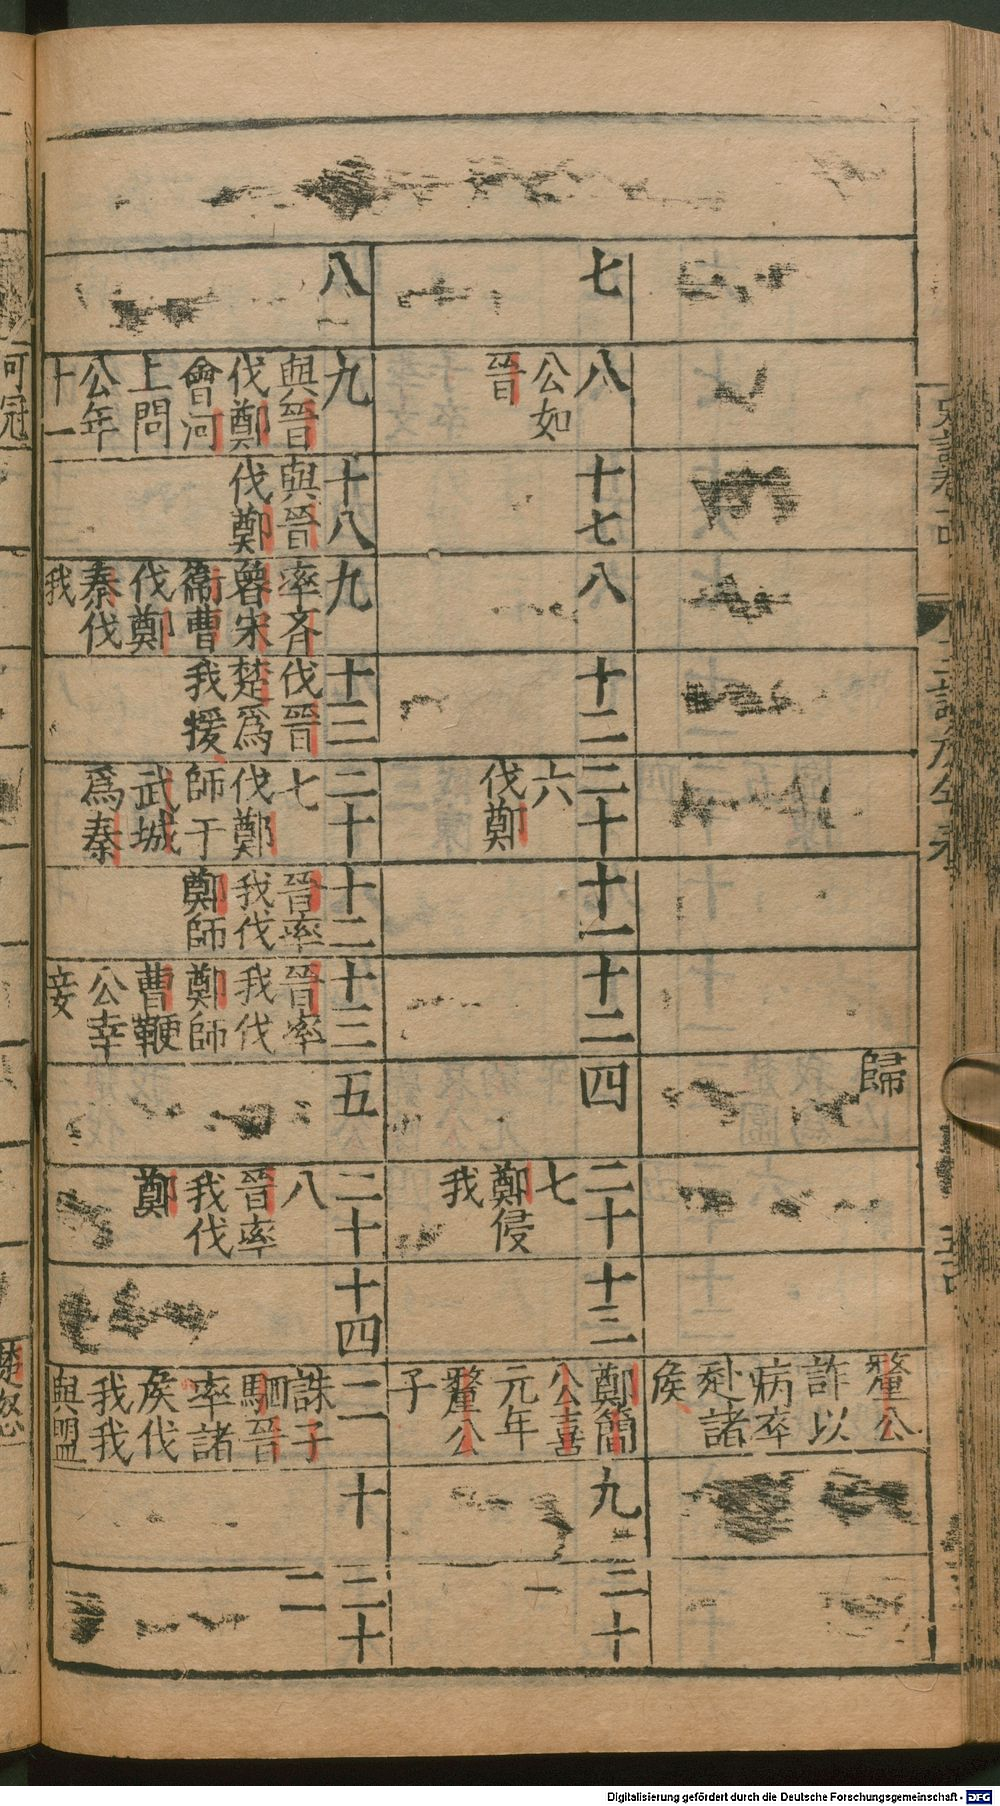 歸
釐公
詐以
病卒
赴諸
侯
七
八
公如
晉
十七
八
十二
二十
六
伐鄭
十一
十二
四
二十
七
鄭侵
我
十三
鄭簡
公喜
元年
釐公
子
九
三十
一
八
九
與晉
伐鄭
會河
上問
公年
十一
十八
與晉
伐鄭
九
率齊
魯宋
衞曹
伐鄭
秦伐
我
十三
伐晉
楚爲
我援
二十
七
伐鄭
師于
武城
爲秦
十二
晉率
我伐
鄭師
十三
晉率
我伐
鄭師
曹鞭
公幸
妾
五
二十
八
晉率
我伐
鄭
十四
二
誅子
駟晉
率諸
侯伐
我我
與盟
十
三十
二
Digitalisierung gefördert durch die Deutsche Forschungsgemeinschaft - DFG